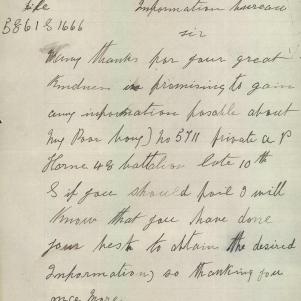 Information bureau
B861 S1666
sir
Many thanks for your great
kindness in promising to gain
any information posable about
my Poor boy) no 5711 private a P
Horne 48 battalion late 10th
S if you should fail I will
know that you have done
your best to obtain the desired
Information) so thanking you
once more